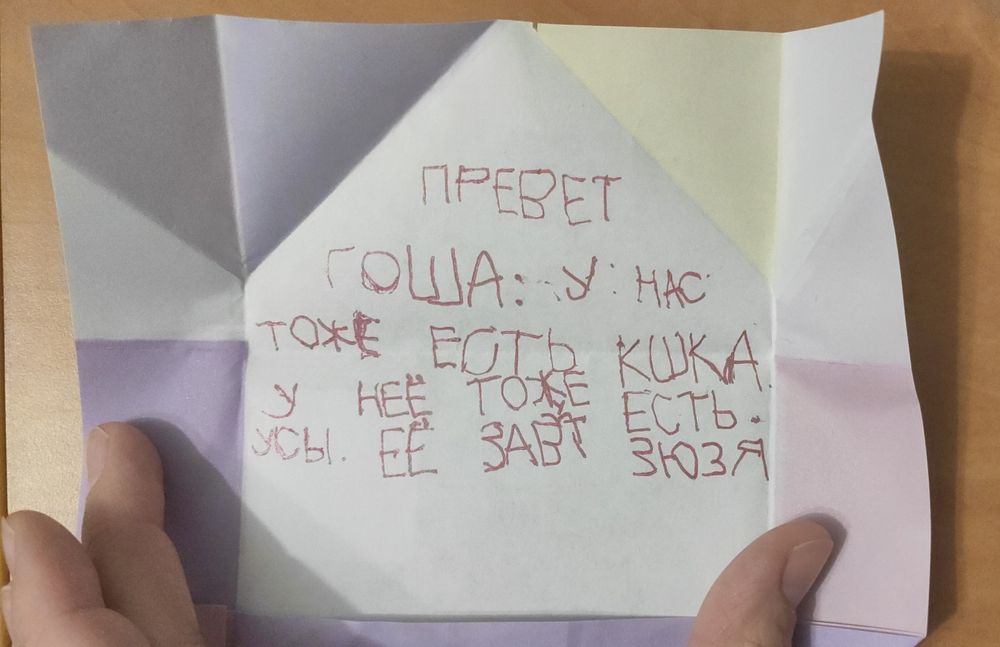 ПРЕВЕТ
ГОША: У: НАС
ТОЖЕ ЕСТЬ КШКА.
У НЕЁ ТОЖЕ ЕСТЬ.
УСЫ. ЕЁ ЗАВЎТ ЗЮЗЯ